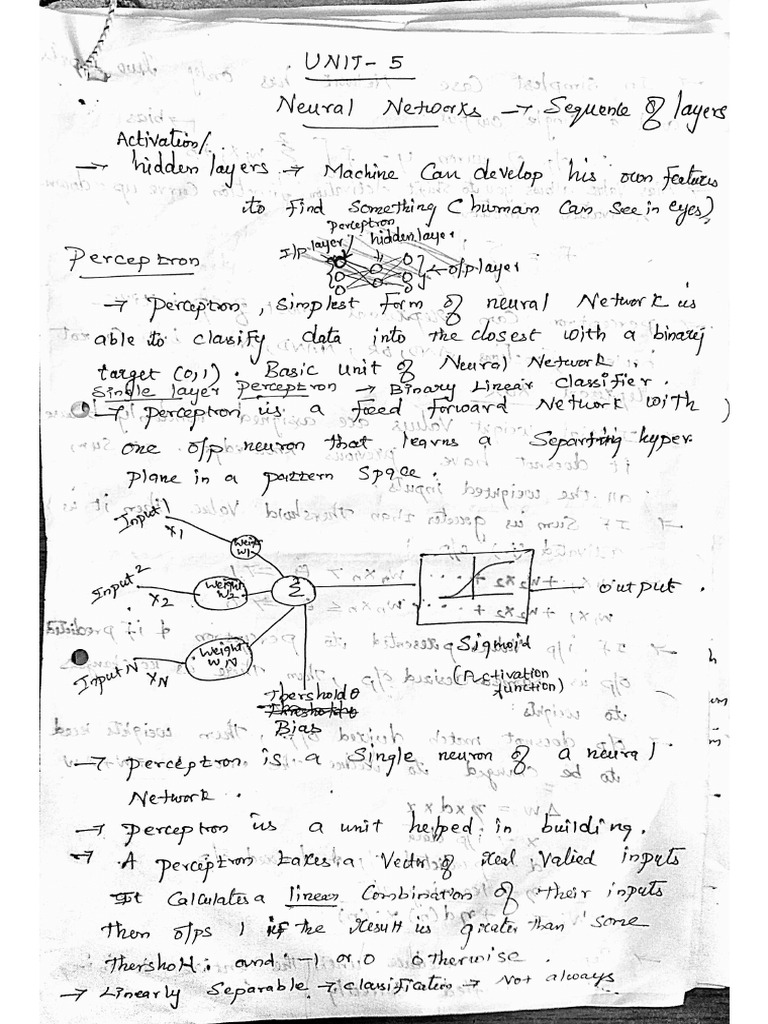 UNIT - 5
Neural Networks → Sequence of layers
Activation/
→ hidden layers → Machine Can develop his own features
to find something (human Can see in eyes)
perceptron
I/p layer hidden layer
← o/p layer
Perceptron
→ perceptron, simplest form of neural Network is
able to classify data into the closest with a binary
target (0,1). Basic Unit of Neural Network.
Single layer perceptron → Binary Linear Classifier.
→ perceptron is a feed forward Network with
one o/p neuron that learns a Separting hyper
plane in a pattern Space.
Input 1
x1
Weight
W1
Input 2
x2
Weight
W2
Σ
output.
Input N
xN
Weight
WN
Sigmoid
(Activation
function)
Thershold θ
Bias
→ perceptron is a Single neuron of a neural
Network.
→ perceptron is a unit helped in building.
→ A perceptron takes a Vector of real Valied inputs
It Calculates a linear Combination of their inputs
then o/ps 1 if the result is greater than some
thershold. and -1 or 0 otherwise.
→ Linearly Separable → classification → Not always